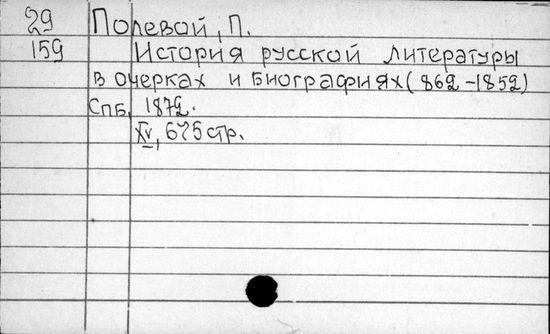 29 Полевой, П.
159 История русской литературы
в очерках и биографиях (862-1852)
СПБ, 1872.
XV, 675 стр.